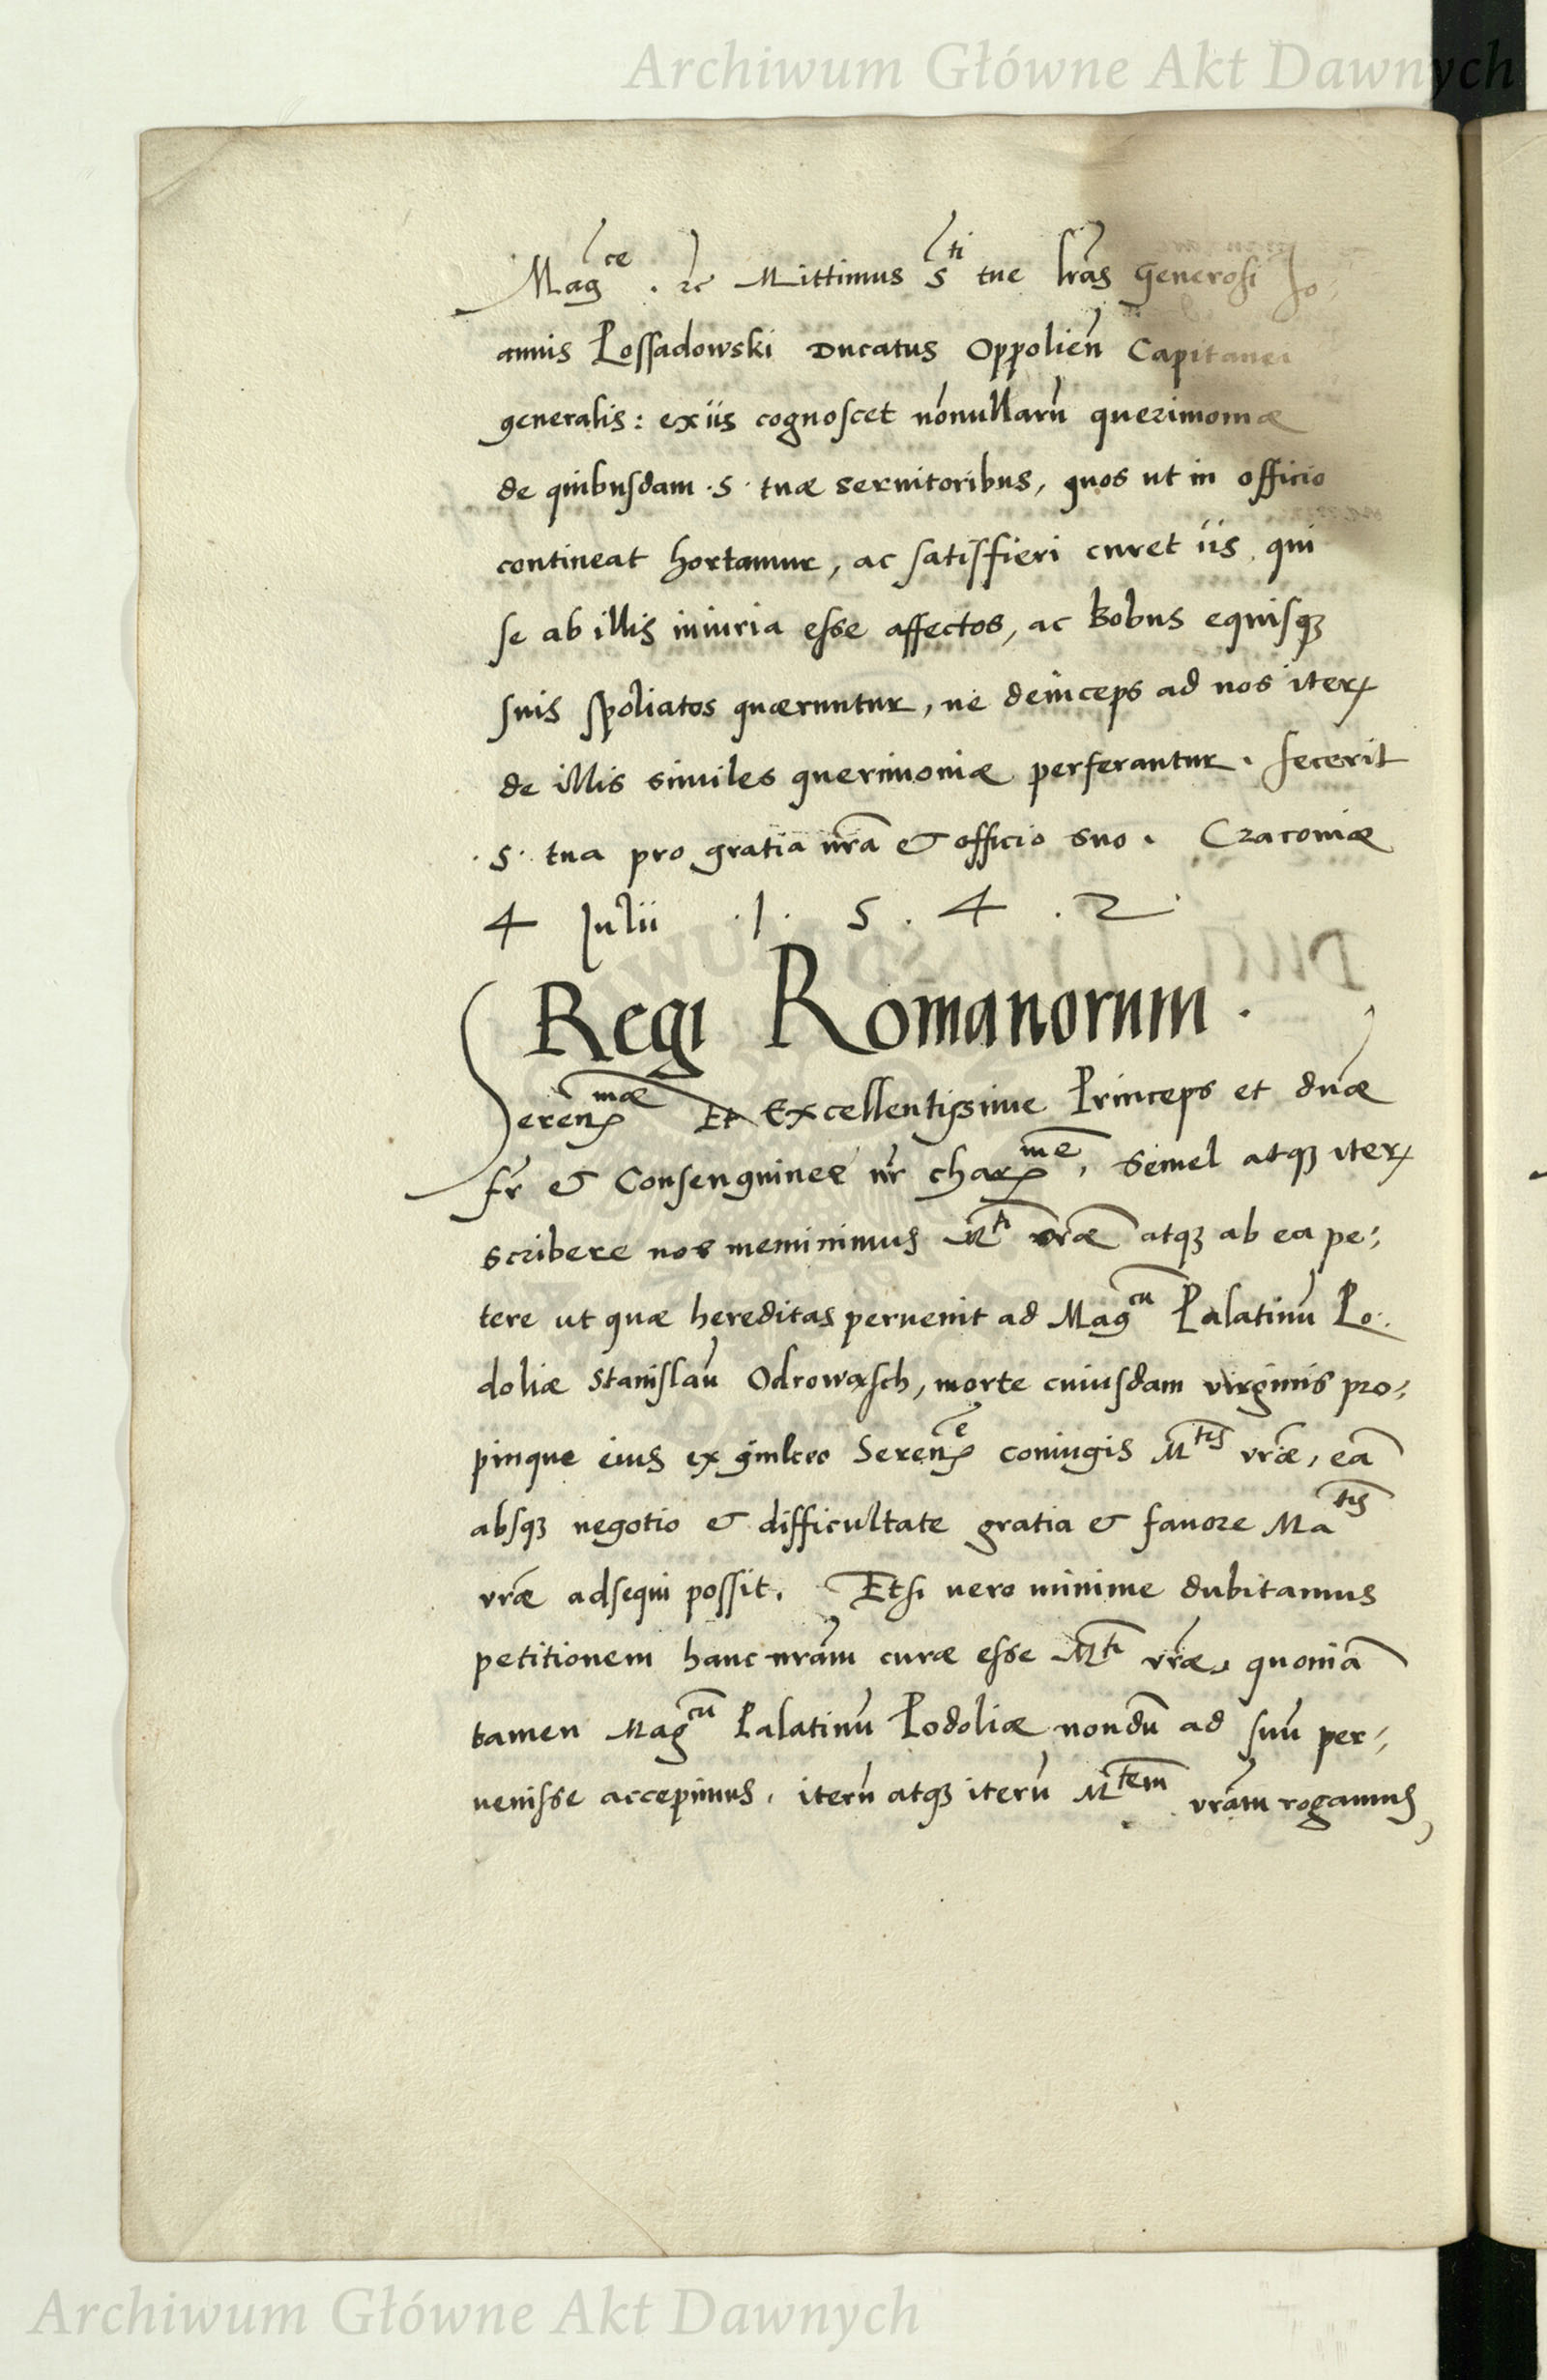 Archiwum Główne Akt Dawnych
Mag^ce . etc Mittimus S^ti tue lr̃as Generosi Jo:
annis Possadowski Ducatus Oppolieñ Capitanei
generalis: ex iis cognoscet nõnullarũ querimoniæ
de quibusdam .S. tuæ seruitoribus, quos ut in officio
contineat hortamur, ac satisfieri curet iis qui
se ab illis iniuria esse affectos, ac bobus equisqꝫ
suis spoliatos quæruntur, ne deinceps ad nos iterꝝ
de illis similes querimoniæ perferantur. fecerit
.S. tua pro gratia nr̃a & officio suo. Cracouiæ
4 Julii .1. 5 . 4 . 2 .
Regi Romanorum .
Sereñ^mæ Et Excellentissime Princeps et dnẽ
fr̃ & Consenguinee nr̃ char^me, Semel atqꝫ iterꝝ
scribere nos meminimus M^ti vr̃æ atqꝫ ab ea pe:
tere ut quæ hereditas peruenit ad Mag^cũ Palatinũ Po:
doliæ Stanislaũ Odrowasch, morte cuiusdam virginis pro:
pinque eius ex Seren^e coniugis M^tis vr̃æ, eã
absqꝫ negotio & difficultate gratia & fauore Ma^tis
vr̃æ adsequi possit. Etsi vero minime dubitamus
petitionem hanc nr̃am curæ esse M^ti vr̃æ, quoniã
tamen Mag^cũ Palatinũ Podoliæ nondũ ad suũ per:
uenisse accepimus, iterũ atqꝫ iterũ M^tem vr̃am rogamus,
Archiwum Główne Akt Dawnych